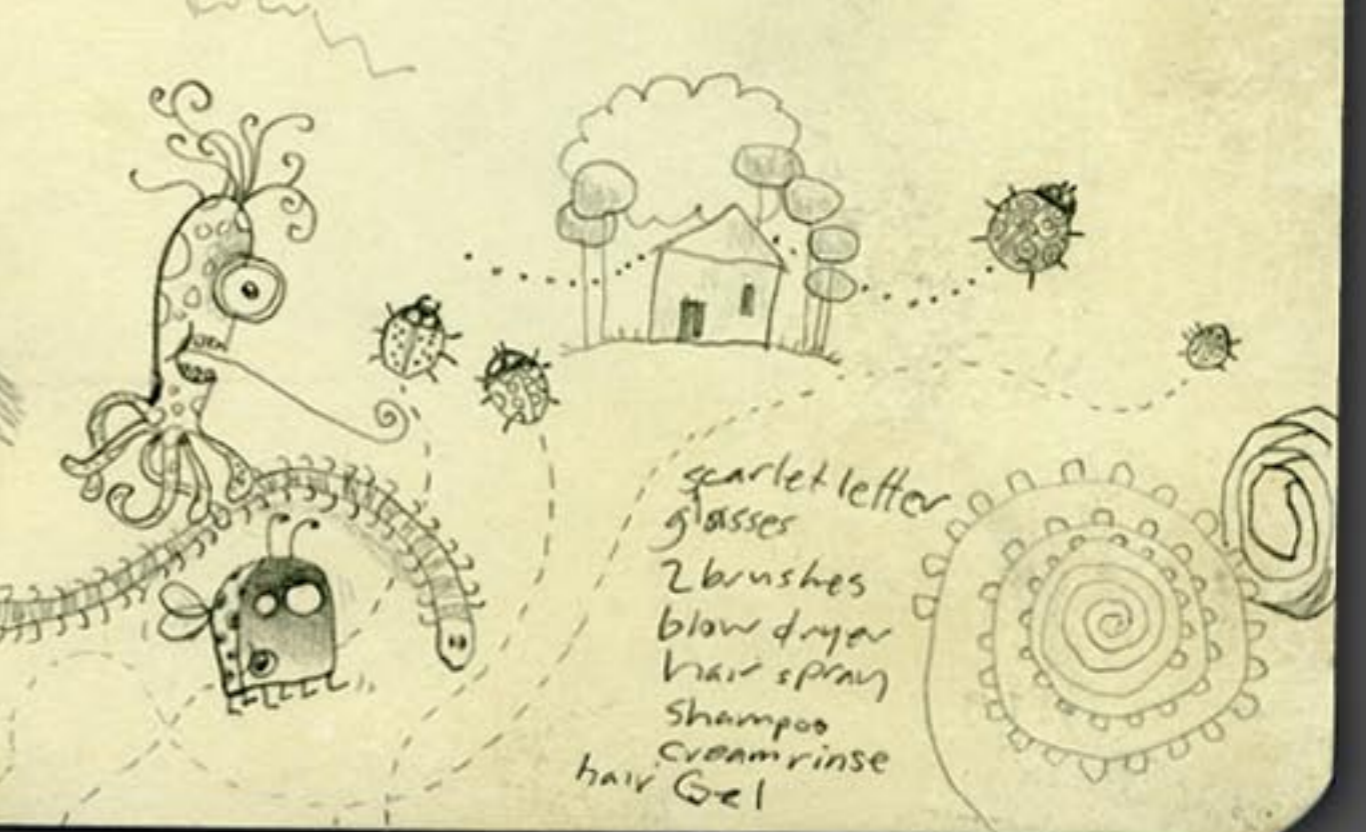 scarlet letter
glasses
2 brushes
blow dryer
hair spray
shampoo
cream rinse
hair Gel